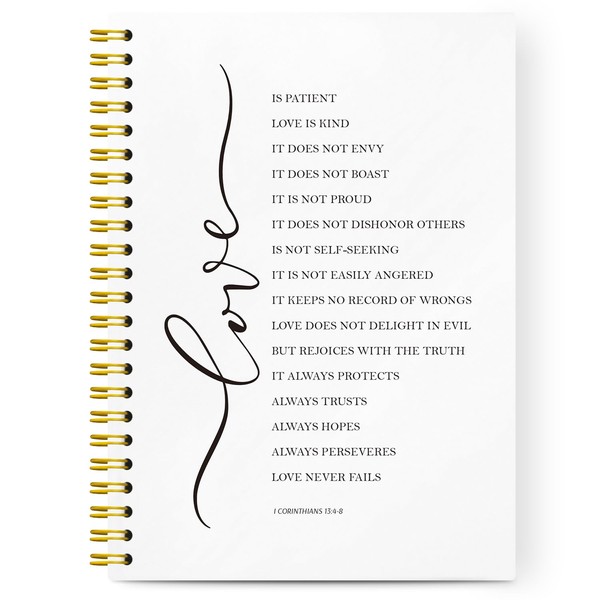 love
IS PATIENT
LOVE IS KIND
IT DOES NOT ENVY
IT DOES NOT BOAST
IT IS NOT PROUD
IT DOES NOT DISHONOR OTHERS
IS NOT SELF-SEEKING
IT IS NOT EASILY ANGERED
IT KEEPS NO RECORD OF WRONGS
LOVE DOES NOT DELIGHT IN EVIL
BUT REJOICES WITH THE TRUTH
IT ALWAYS PROTECTS
ALWAYS TRUSTS
ALWAYS HOPES
ALWAYS PERSEVERES
LOVE NEVER FAILS
I CORINTHIANS 13:4-8